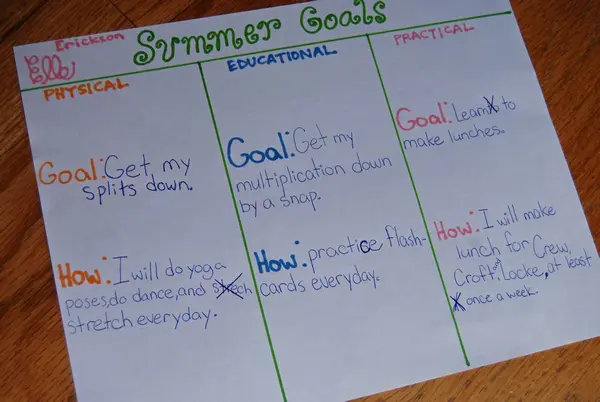 Summer Goals
Erickson
Elle
PHYSICAL
Goal: Get my
splits down.
How: I will do yoga
poses, do dance, and
stretch everyday.
EDUCATIONAL
Goal: Get my
multiplication down
by a snap.
How: practice flash-
cards everyday.
PRACTICAL
Goal: Learn to
make lunches.
How: I will make
lunch for Crew,
Croft, Locke, at least
once a week.